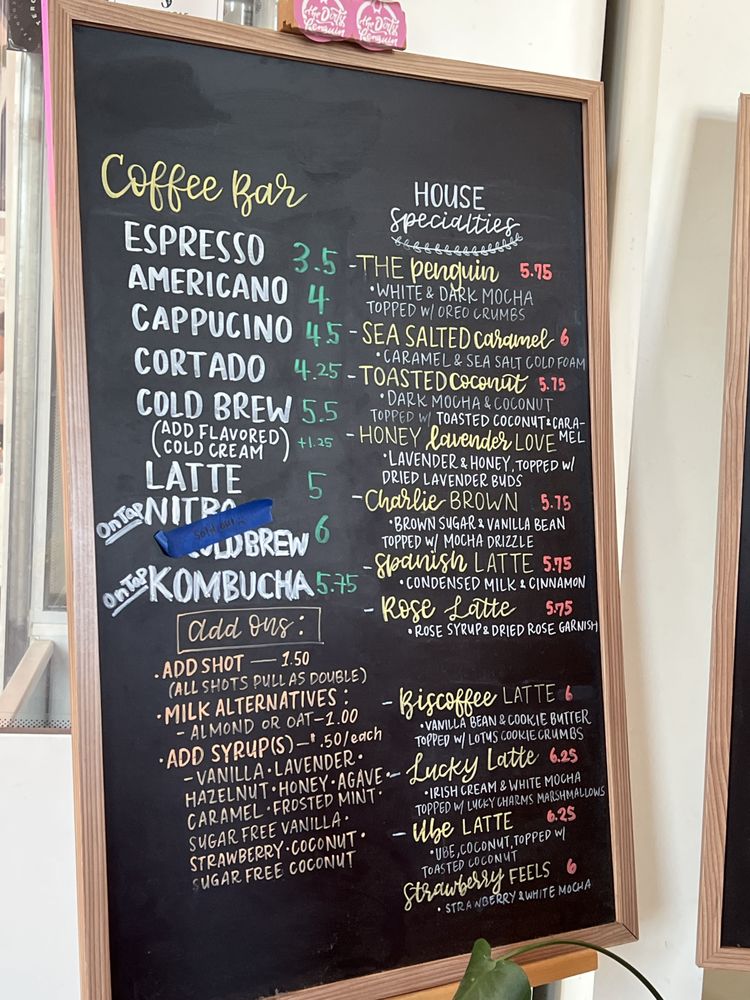 the Dirty Penguin
the Dirty Penguin
Coffee Bar
ESPRESSO 3.5
AMERICANO 4
CAPPUCINO 4.5
CORTADO 4.25
COLD BREW 5.5
(ADD FLAVORED COLD CREAM) +1.25
LATTE 5
on Tap NITRO
sold out
COLDBREW 6
on Tap KOMBUCHA 5.75
add ons:
·ADD SHOT — 1.50
(ALL SHOTS PULL AS DOUBLE)
·MILK ALTERNATIVES:
- ALMOND OR OAT-1.00
·ADD SYRUP(S)-$.50/each
-VANILLA·LAVENDER·
HAZELNUT·HONEY·AGAVE·
CARAMEL·FROSTED MINT·
SUGAR FREE VANILLA·
STRAWBERRY·COCONUT·
SUGAR FREE COCONUT
HOUSE
Specialties
-THE penguin 5.75
·WHITE & DARK MOCHA
TOPPED W/ OREO CRUMBS
-SEA SALTED caramel 6
·CARAMEL & SEA SALT COLD FOAM
-TOASTED coconut 5.75
·DARK MOCHA & COCONUT
TOPPED W/ TOASTED COCONUT & CARA-
MEL
-HONEY lavender LOVE
·LAVENDER & HONEY, TOPPED W/
DRIED LAVENDER BUDS
-Charlie BROWN 5.75
·BROWN SUGAR & VANILLA BEAN
TOPPED W/ MOCHA DRIZZLE
-spanish LATTE 5.75
·CONDENSED MILK & CINNAMON
- Rose Latte 5.75
·ROSE SYRUP & DRIED ROSE GARNISH
- Biscoffee LATTE 6
·VANILLA BEAN & COOKIE BUTTER
TOPPED W/ LOTUS COOKIE CRUMBS
- Lucky Latte 6.25
·IRISH CREAM & WHITE MOCHA
TOPPED W/ LUCKY CHARMS MARSHMALLOWS
- Ube LATTE 6.25
·UBE, COCONUT, TOPPED W/
TOASTED COCONUT
Strawberry FEELS 6
·STRAWBERRY & WHITE MOCHA